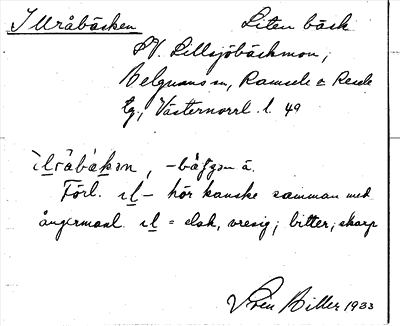 Illråbäcken Liten bäck
SV. Lillsjöbäckmon,
Helgums sn, Ramsele o Resele
tg, Västernorrl. l. 49
ilråbäkən, -båfgən ä.
Förl. il- hör kanske samman med
ångermanl. il = elak, vresig; bitter, skarp
Sven Hiller 1933